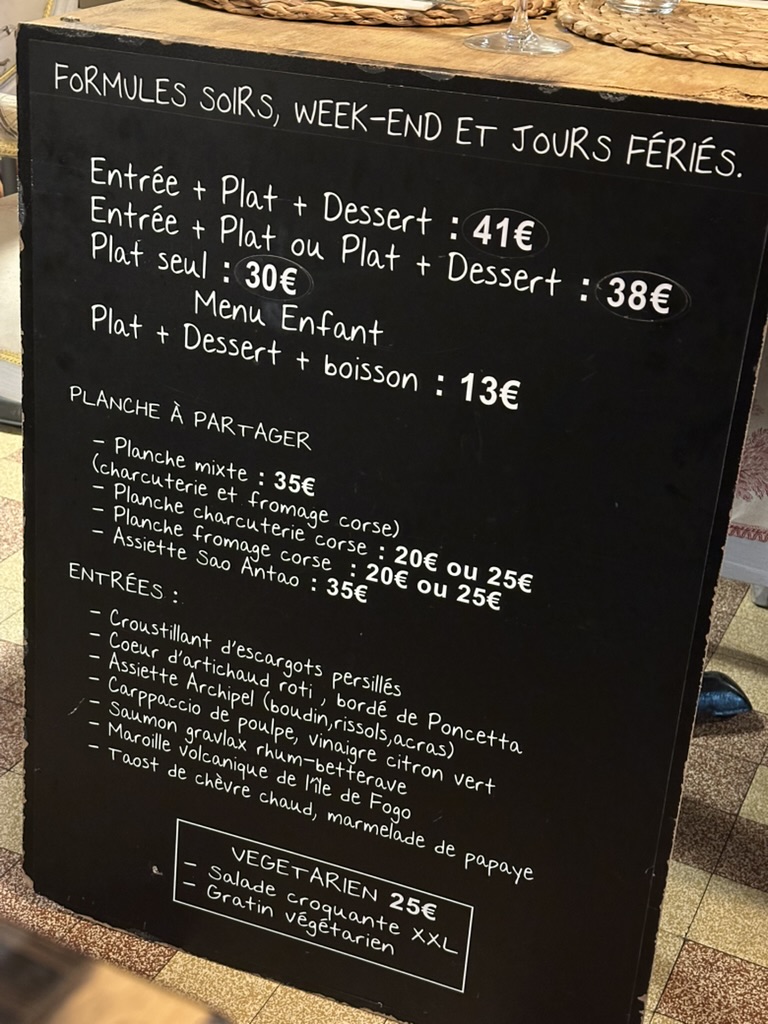 FORMULES SOIRS, WEEK-END ET JOURS FÉRIÉS.
Entrée + Plat + Dessert : 41€
Entrée + Plat ou Plat + Dessert : 38€
Plat seul : 30€
Menu Enfant
Plat + Dessert + boisson : 13€
PLANCHE À PARTAGER
- Planche mixte : 35€
(charcuterie et fromage corse)
- Planche charcuterie corse : 20€ ou 25€
- Planche fromage corse : 20€ ou 25€
- Assiette Sao Antao : 35€
ENTRÉES :
- Croustillant d'escargots persillés
- Coeur d'artichaud roti , bordé de Poncetta
- Assiette Archipel (boudin,rissols,acras)
- Carppaccio de poulpe, vinaigre citron vert
- Saumon gravlax rhum-betterave
- Maroille volcanique de l'île de Fogo
- Taost de chèvre chaud, marmelade de papaye
VEGETARIEN 25€
- Salade croquante XXL
- Gratin végétarien